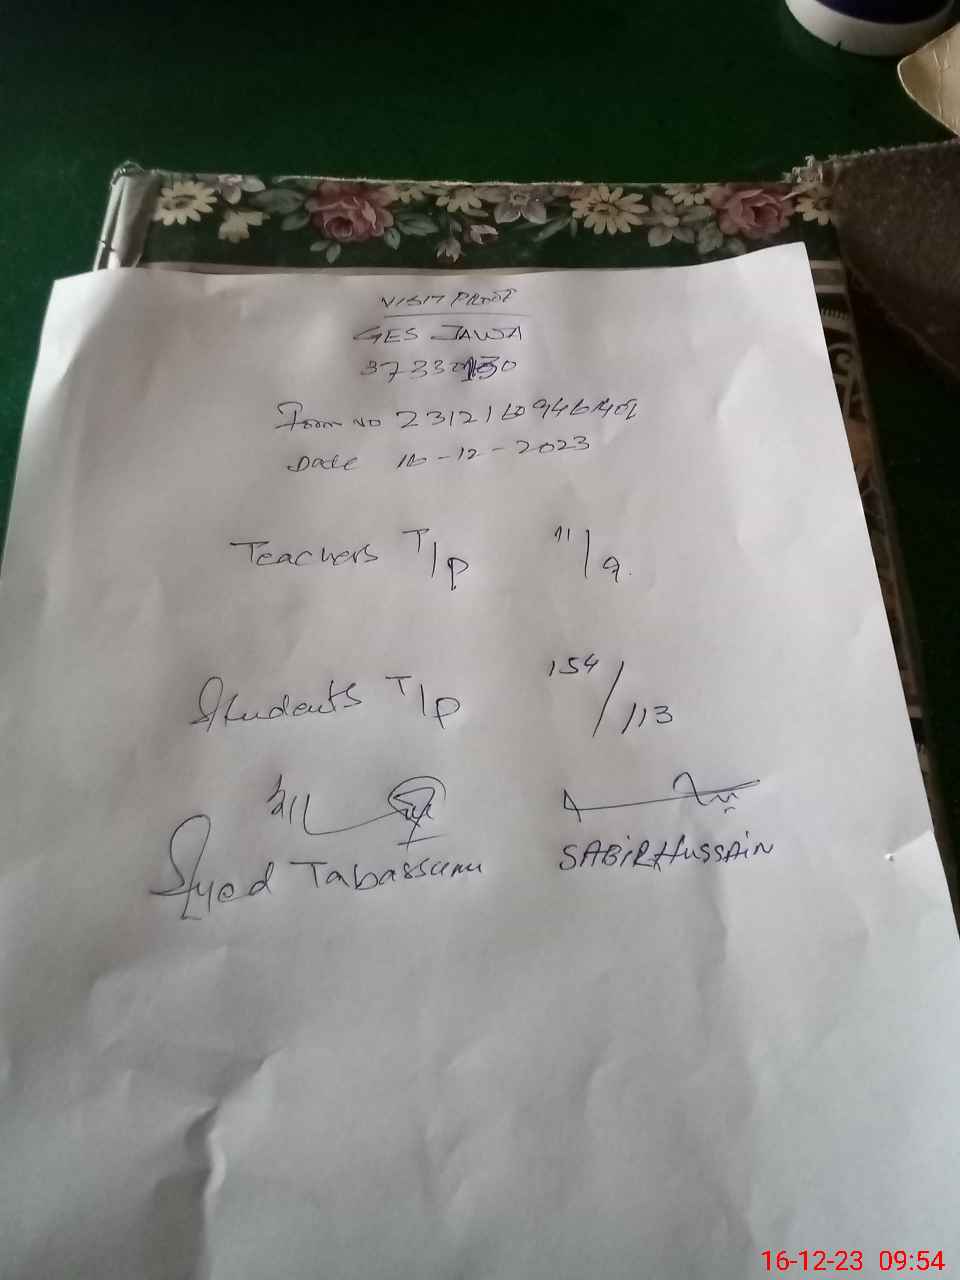 VISIT PROOF
GES JAWA
37330130
Form NO
Date 16-12-2023
Teachers T/p 11/9.
Students T/p 154/113
Syed Tabassum SABIR HUSSAIN
16-12-23 09:54